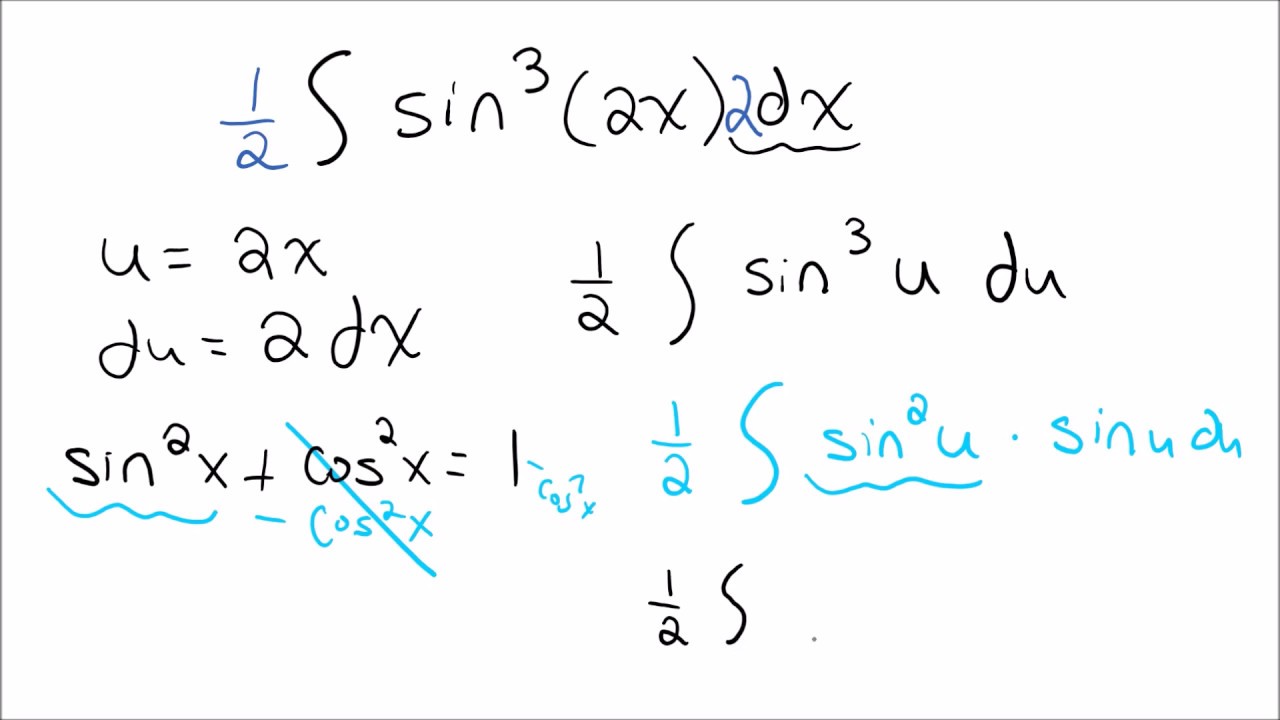 1/2 ∫ sin³(2x)2dx
u = 2x
du = 2 dx
1/2 ∫ sin³ u du
sin²x + cos²x = 1 - cos²x
- cos²x
1/2 ∫ sin²u · sin u du
1/2 ∫